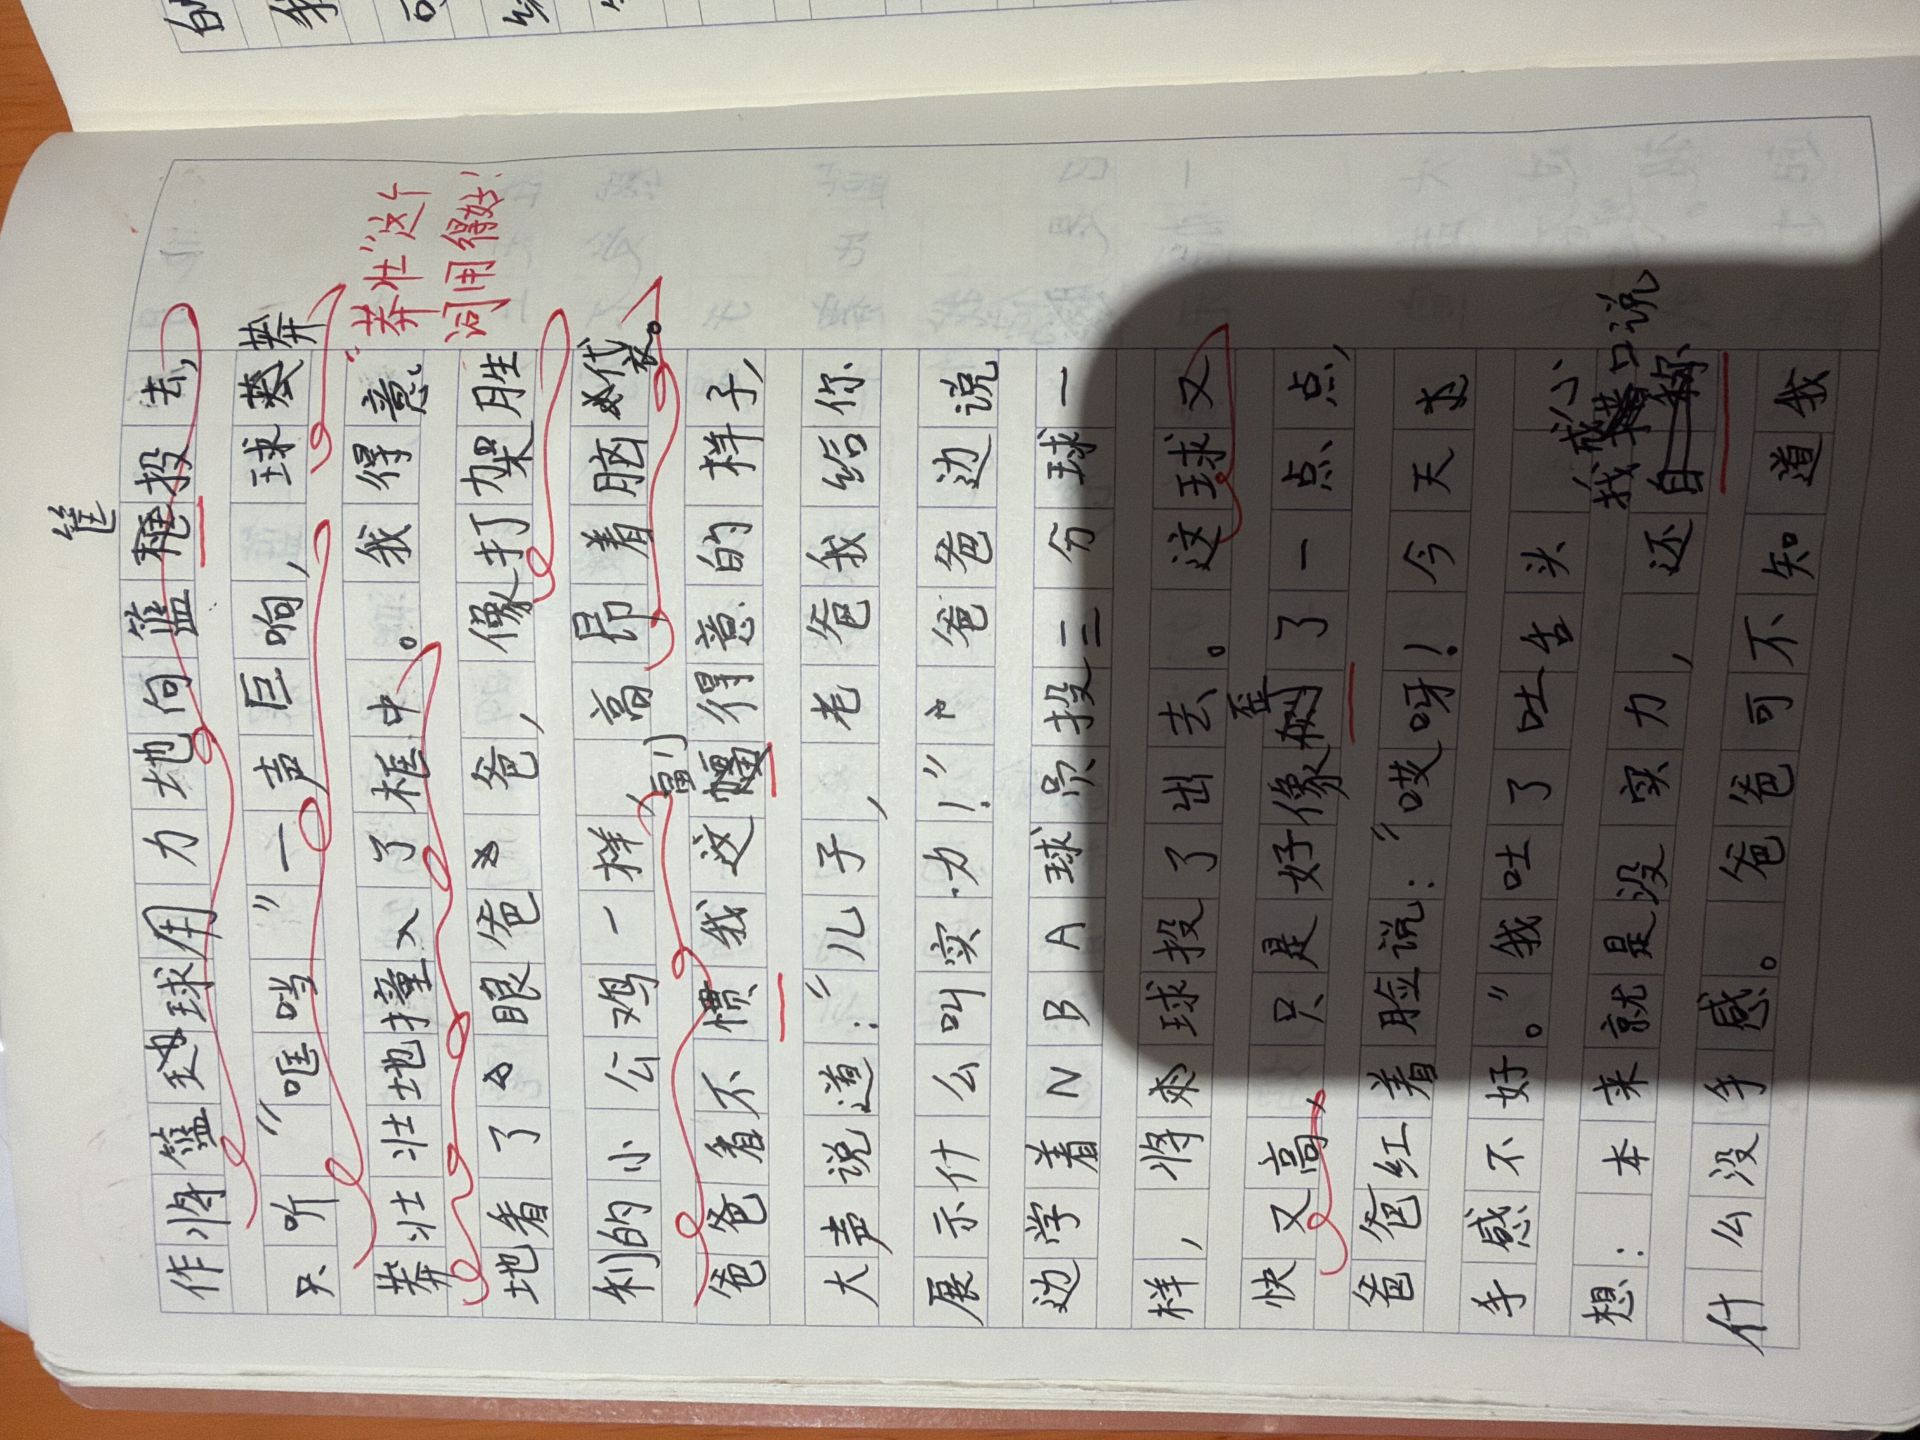 作将篮球用力地向篮筐投去,
只听“哐当”一声巨响,球莽
莽壮壮地撞入了框中。我得意
地看了眼爸爸,像打架胜
利的小公鸡一样,高昂着脑袋。
爸爸看不惯我这副得意的样子,
大声说道:“儿子,老爸我给你
展示什么叫实力!”爸爸边说
边学着NBA球员投三分球一
样,将球投了出去。这球又
快又高,只是好像歪了一点点,
爸爸红着脸说:“哎呀!今天
手感不好。”我吐了吐舌头
想:本来就是没实力,还
我小
口说
什么没手感。爸爸可不知道我
筐
莽
副
歪
“莽壮”这个
词用得好!